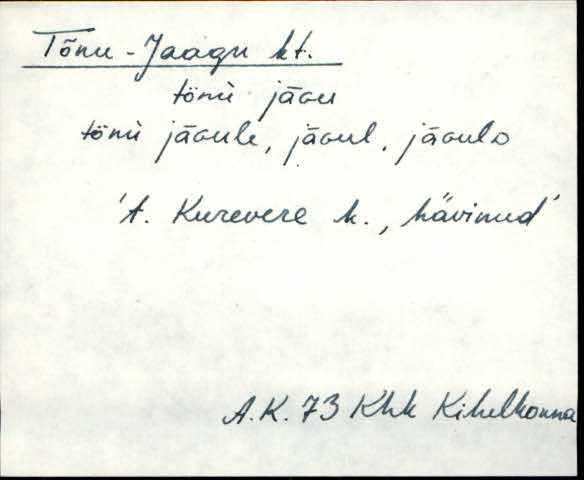 Tõnu-Jaagu kt.
tönü jāou
tönü jāoule, jāoul, jāoulo
't. Kurevere k., hävinud'
A.K. 73 Khk Kihelkonna